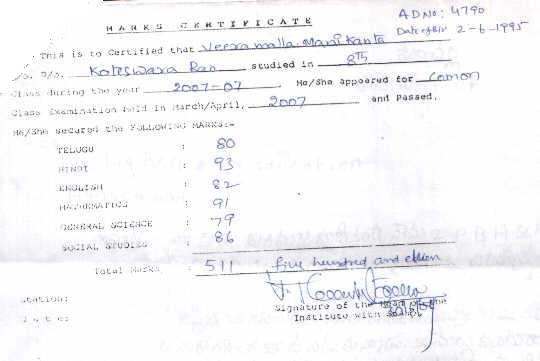 MARKS CERTIFICATE
ADNO: 4790
Date of Bir 2-6-1995
This is to Certified that Veeramalla. Mani Kanta
S. D/o. Koteswara Rao studied in 8Th
Class during the year 2007-07 He/She appeared for Comon
Class Examination held in March/April, 2007 and Passed.
He/She secured the FOLLOWING MARKS:-
TELUGU : 80
HINDI : 93
ENGLISH : 82
MATHEMATICS : 91
GENERAL SCIENCE : 79
SOCIAL STUDIES : 86
Total Marks : 511 five hundred and eleven
Station:
Date:
Signature of the Head of the
Institute with